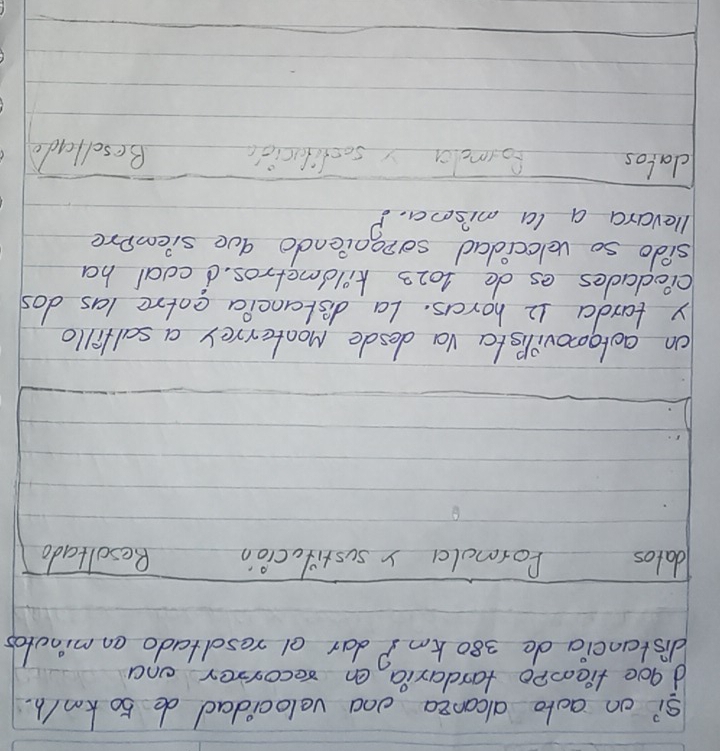 Si un auto alcanza una velocidad de 50 km/h.
¿que tiempo tardaria en recorrer una
distancia de 380 km? dar el resultado en minutos
datos Formula y sustitución Resultado
un automovilista va desde Monterrey a saltillo
y tarda 12 horas. La distancia entre las dos
ciudades es de 1023 kilometros. ¿cual ha
sido su velocidad suponiendo que siempre
llevara a la misma?
datos Formula y sustitución Resultado